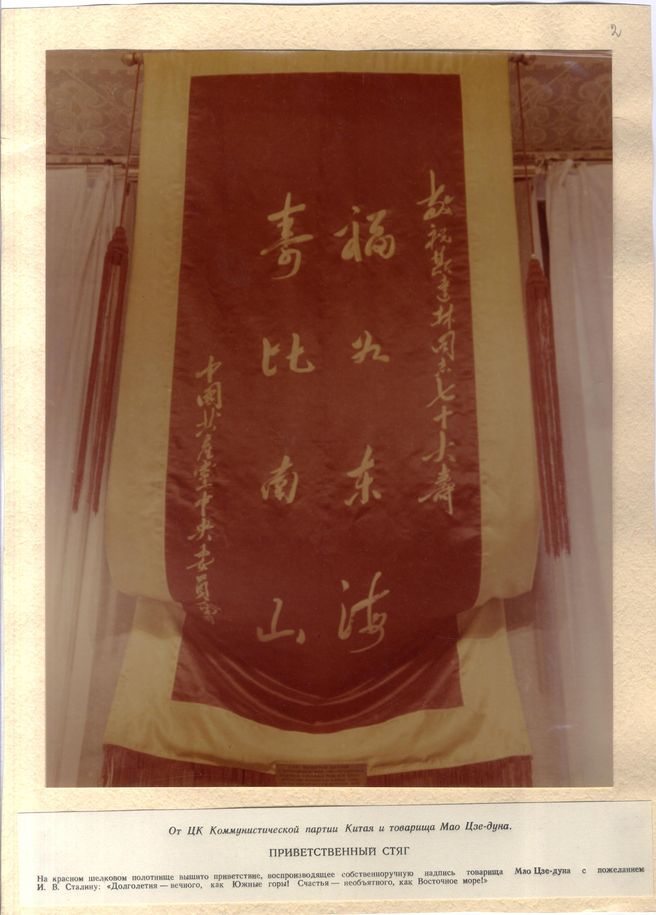 2
敬祝斯達林同志七十大壽
福如东海
壽比南山
中國共产党中央委員會
От ЦК Коммунистической партии Китая и товарища Мао Цзе-дуна.
ПРИВЕТСТВЕННЫЙ СТЯГ
На красном шелковом полотнище вышито приветствие, воспроизводящее собственноручную надпись товарища Мао Цзе-дуна с пожеланием
И. В. Сталину: «Долголетия — вечного, как Южные горы! Счастья — необъятного, как Восточное море!»